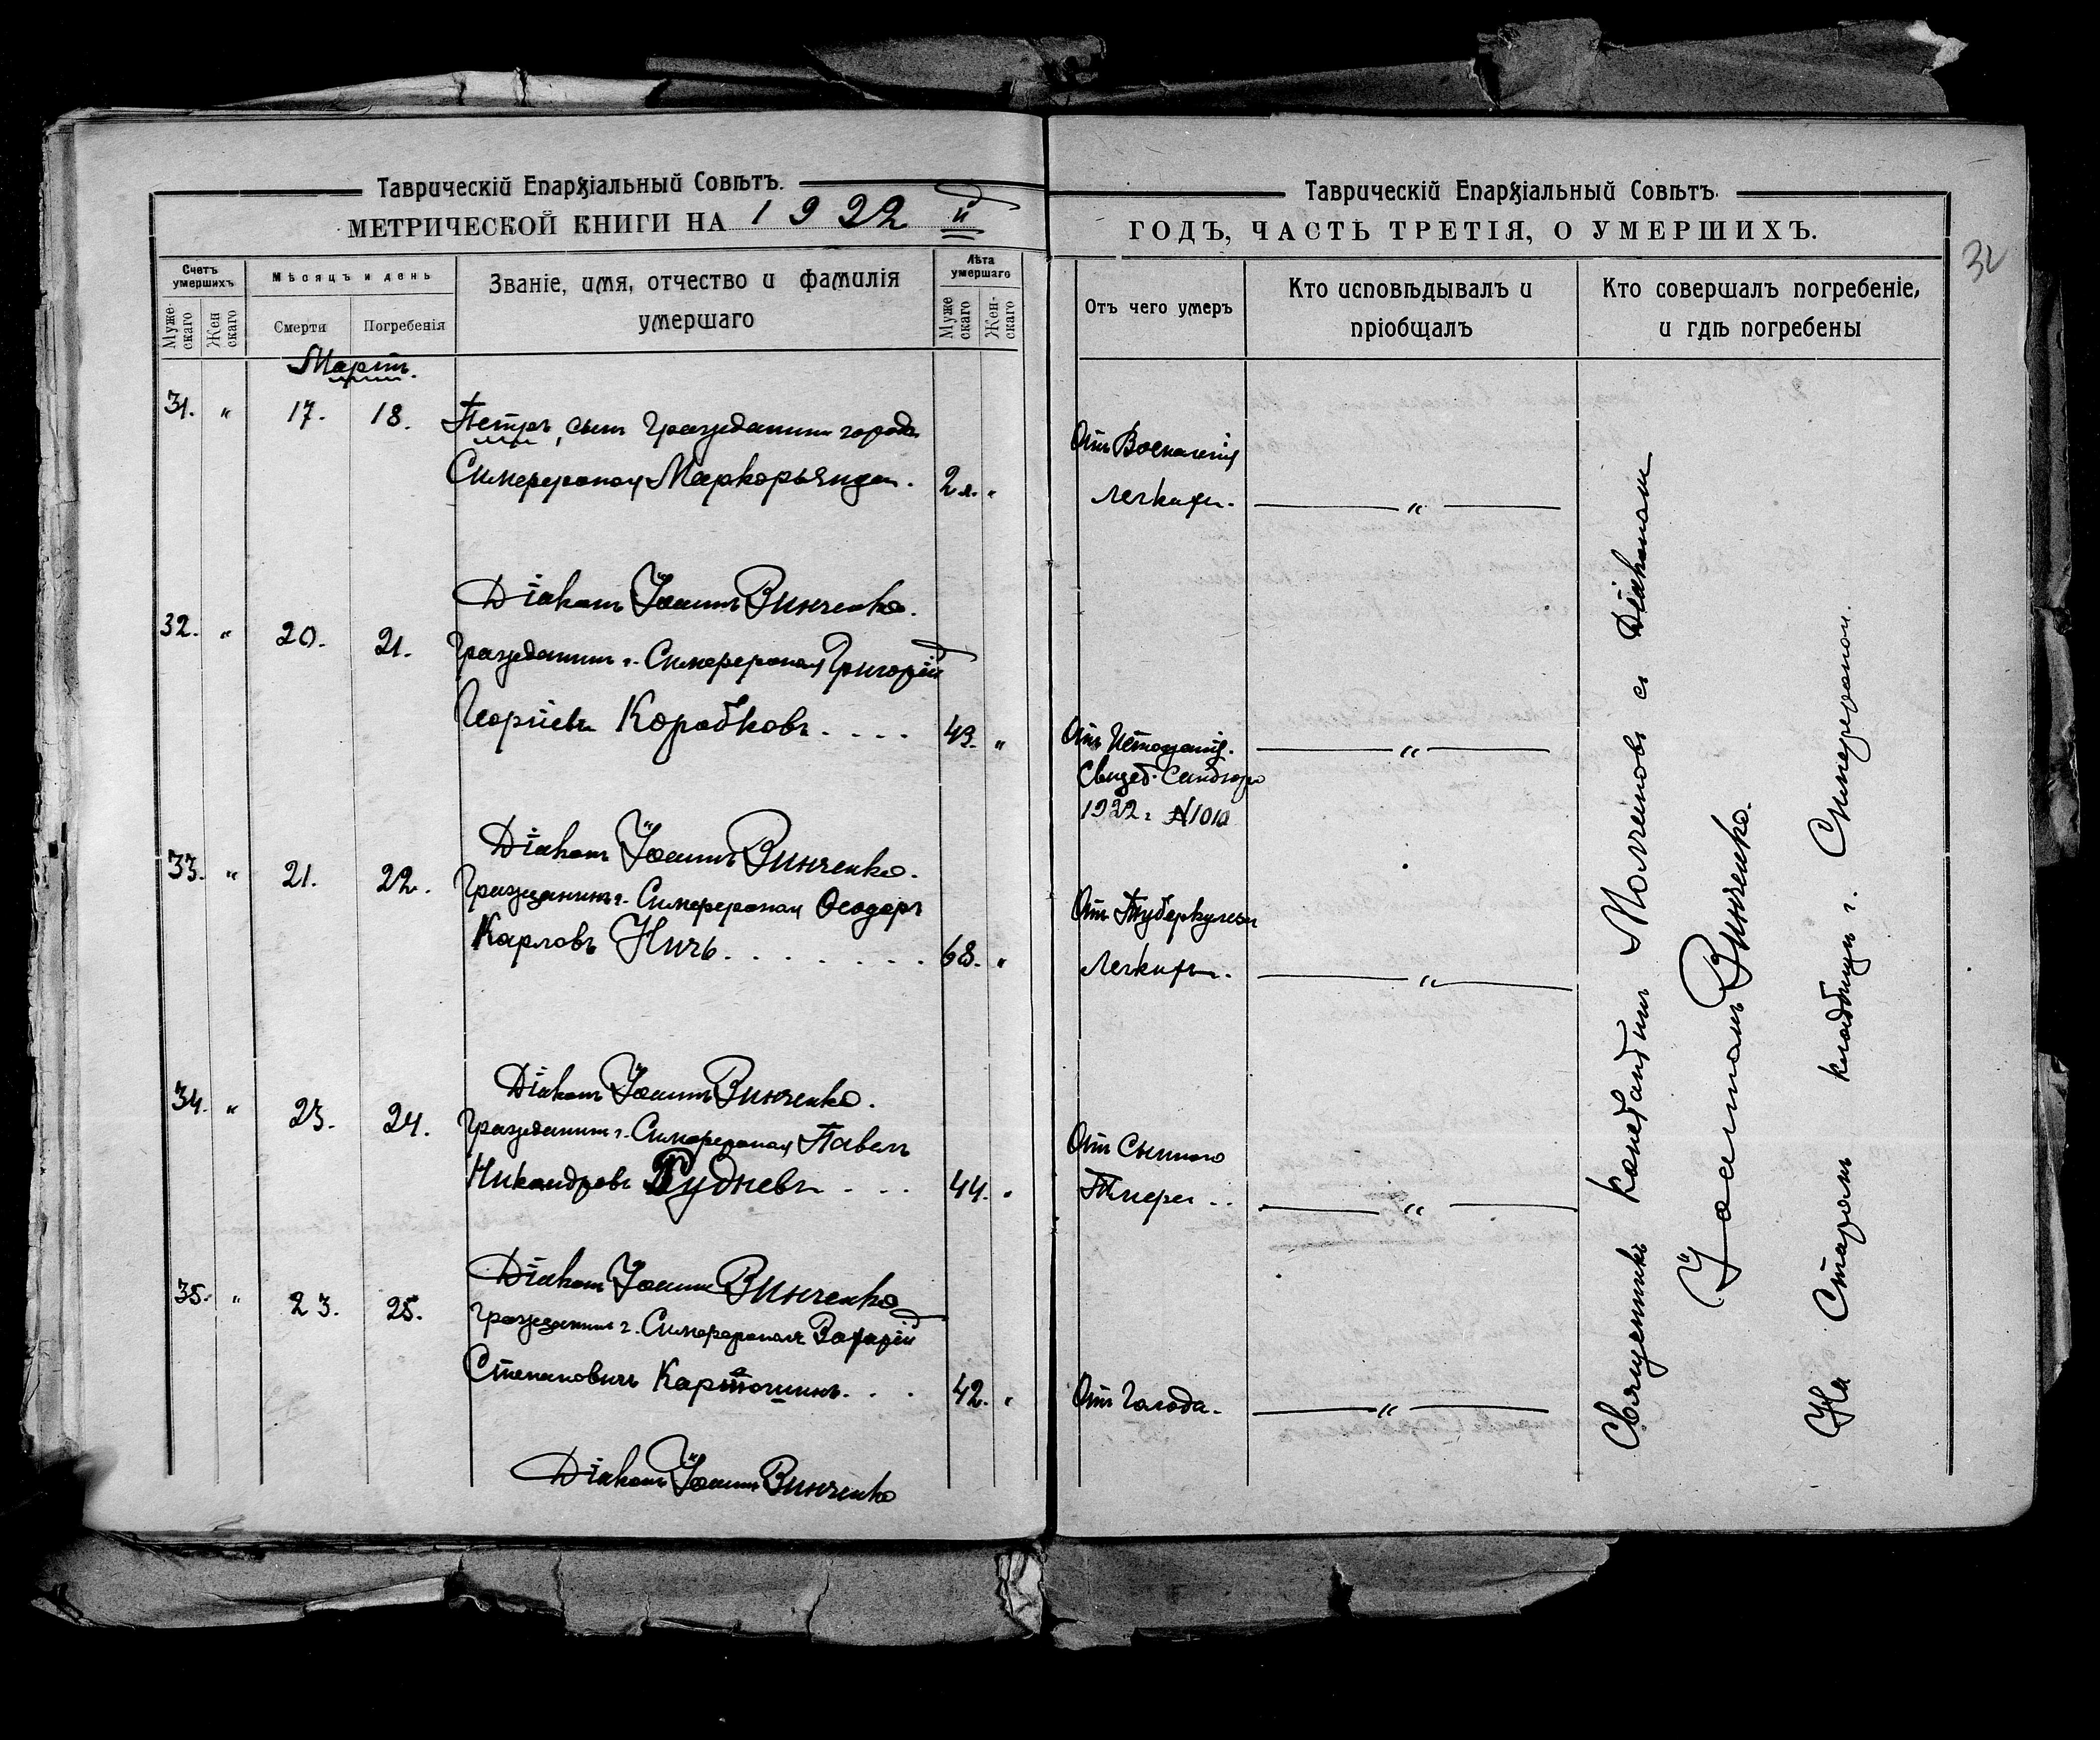 Таврическій Епархіальный Совѣтъ.
МЕТРИЧЕСКОЙ КНИГИ НА 1922 й
Счетъ умершихъ
Мѣсяцъ и день
Званіе, имя, отчество и фамилія умершаго
Лѣта умершаго
Мужескаго
Женскаго
Смерти
Погребенія
Мужескаго
Женскаго
Мартъ.
31. " 17. 18. Петръ, сынъ Гражданина города
Симферополя Маркарьянца. 2 л. "
Діаконъ Іоаннъ Винченко.
32. " 20. 21. Гражданинъ г. Симферополя Григорій
Георгіевъ Коробковъ.... 43. "
Діаконъ Іоаннъ Винченко.
33. " 21. 22. Гражданинъ г. Симферополя Ѳеодоръ
Карловъ Ничъ........ 68. "
Діаконъ Іоаннъ Винченко.
34. " 23. 24. Гражданинъ г. Симферополя Павелъ
Никандровъ Рудневъ... 44. "
Діаконъ Іоаннъ Винченко
35. " 23. 25. Гражданинъ г. Симферополя
Степановичъ 42. "
Діаконъ Іоаннъ Винченко
Таврическій Епархіальный Совѣтъ.
ГОДЪ, ЧАСТЬ ТРЕТІЯ, О УМЕРШИХЪ.
32
Отъ чего умеръ
Кто исповѣдывалъ и пріобщалъ
Кто совершалъ погребеніе, и гдѣ погребены
Отъ Воспаленія
легкихъ. "
Отъ Истощенія. "
Свидѣт.
1922 г. №
Отъ Туберкулеза
Легкихъ. "
Отъ Сыпного
Тифа.. "
Отъ Голода. "
Священникъ Константинъ Молчановъ с Діакономъ
Іоанномъ Винченко.
На Старомъ кладбищѣ г. Симферополя.